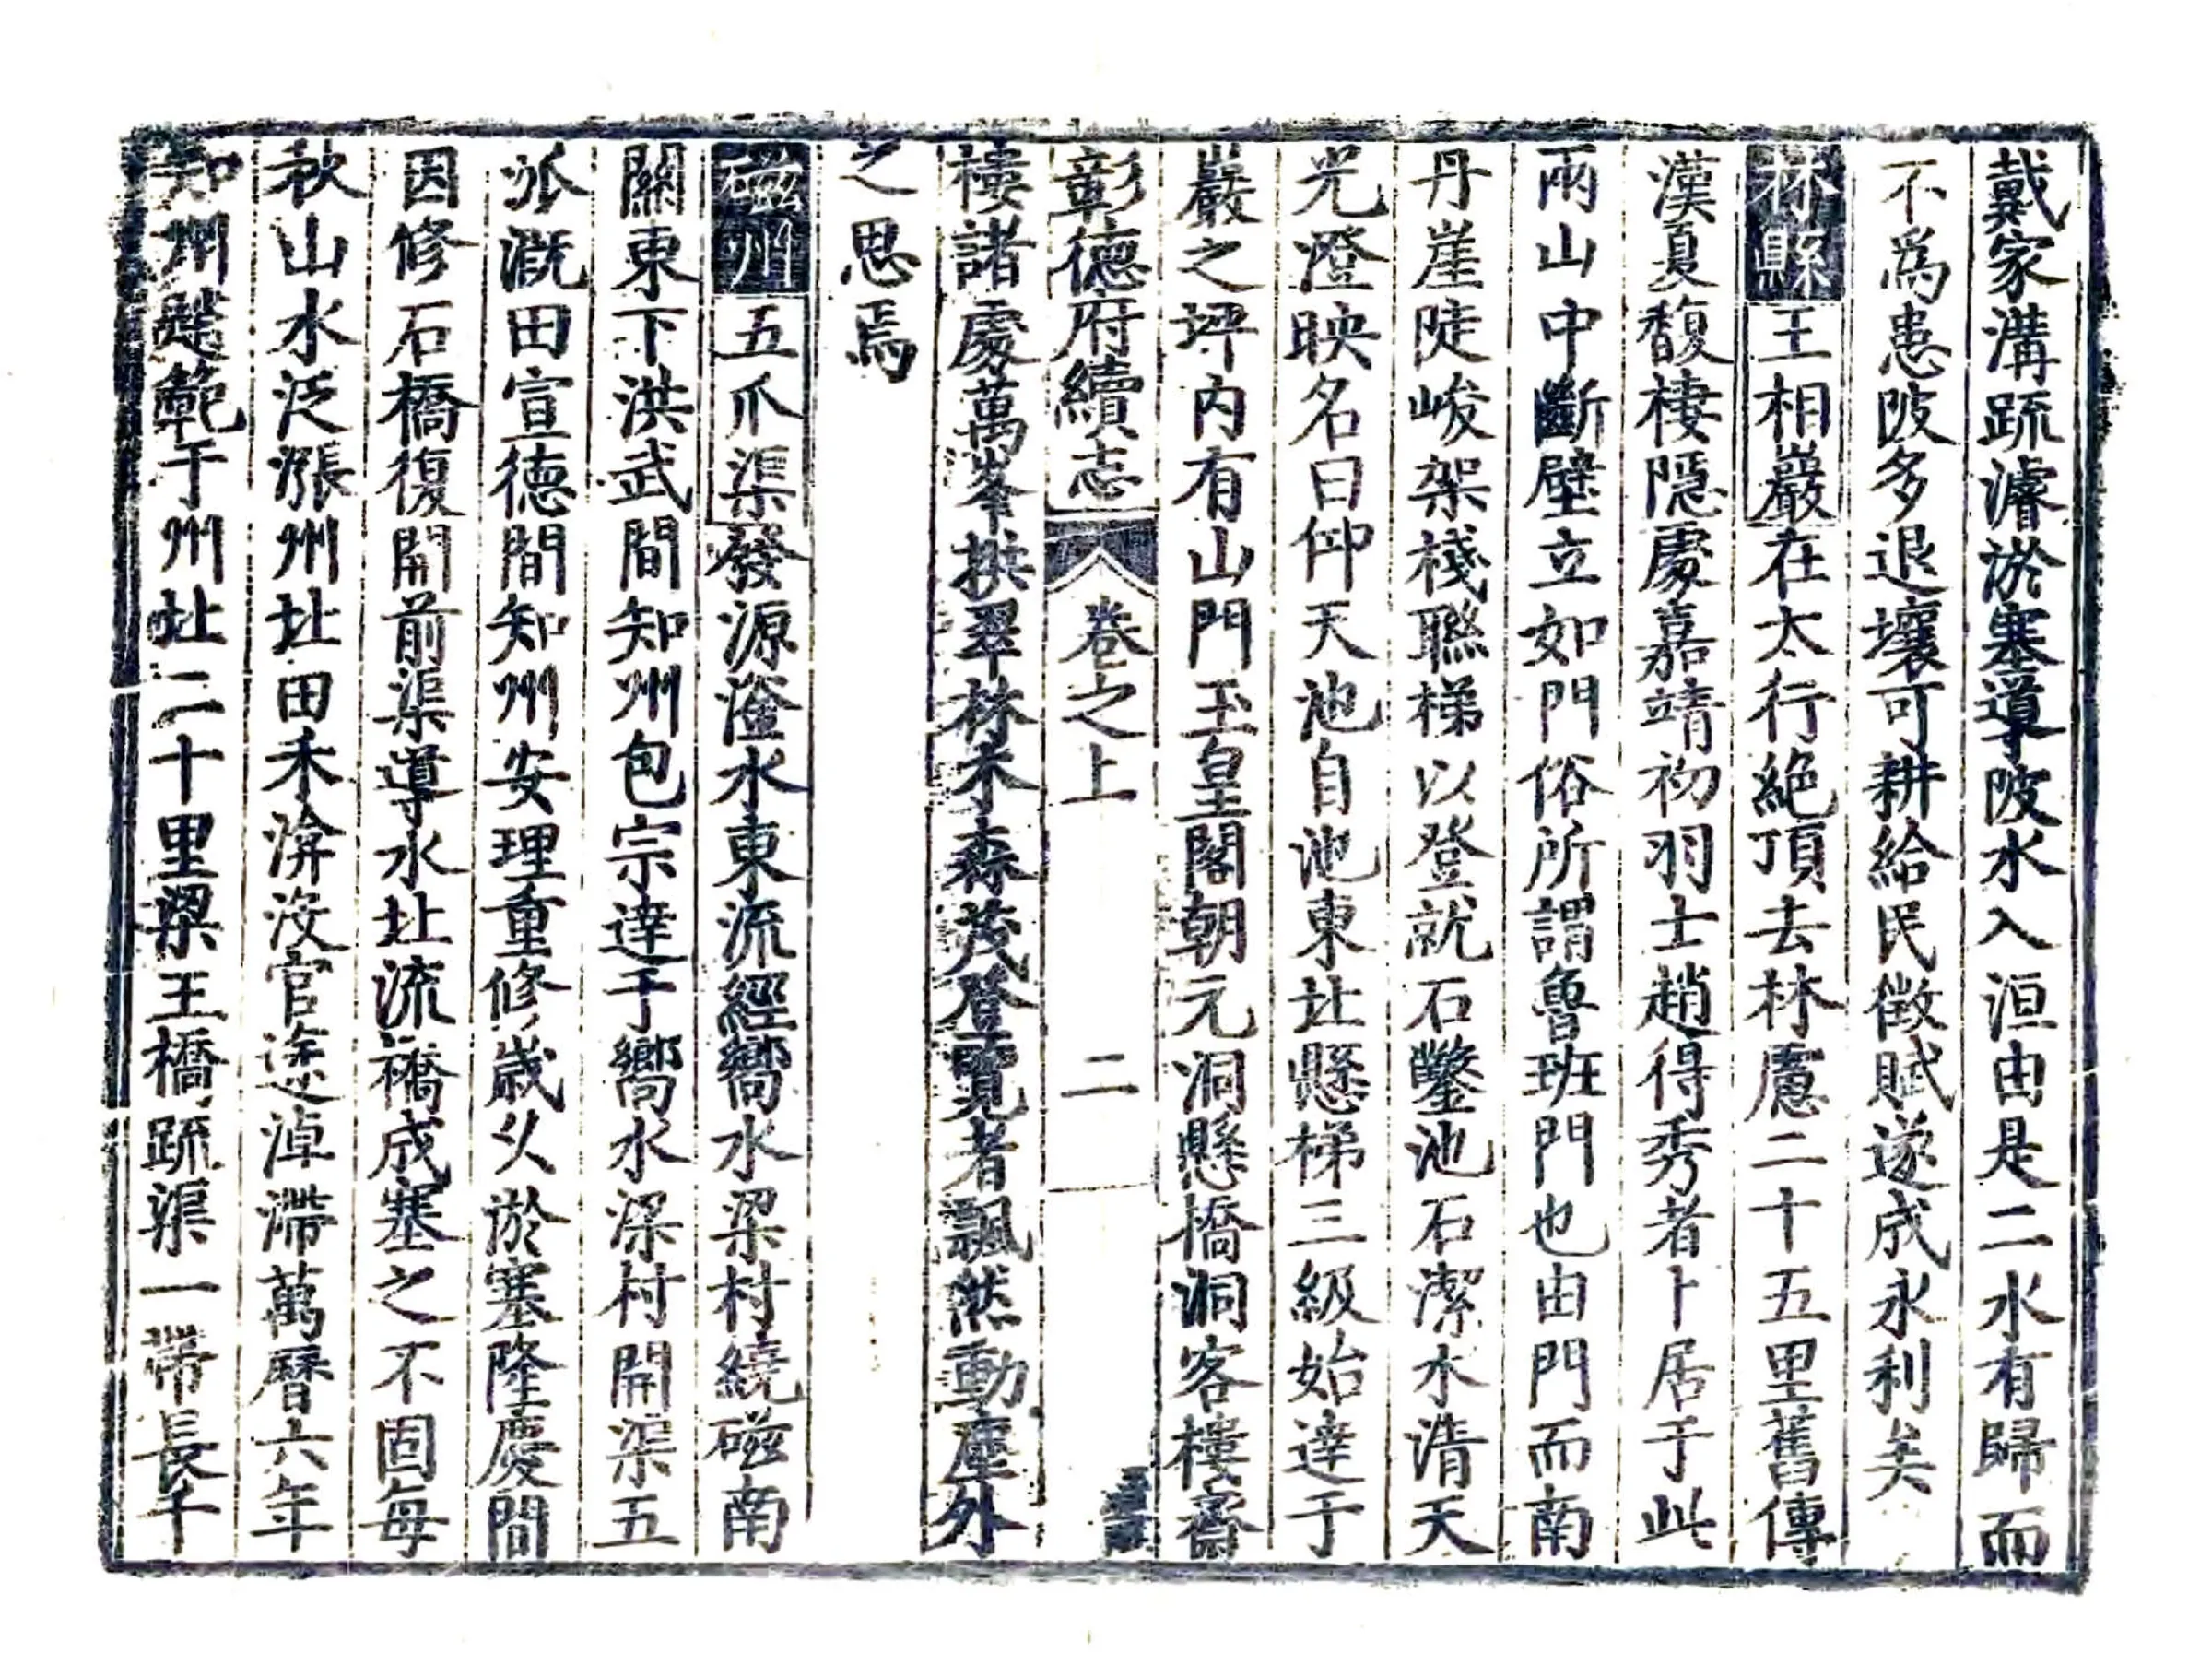 戴家溝疏濬淤塞導陂水入洹由是二水有歸而
不爲患陂多退壤可耕給民徵賦遂成永利矣
林縣王相巖在太行絶頂去林慮二十五里舊傳
漢夏馥棲隱處嘉靖初羽士趙得秀者卜居于此
兩山中斷壁立如門俗所謂魯班門也由門而南
丹崖陡峻架棧聮梯以登就石鑿池石潔水清天
光澄映名曰仰天池自池東北懸梯三級始達于
巖之坪內有山門玉皇閣朝元洞懸橋洞客樓齋
彰德府續志 卷之上 二
樓諸處萬峯拱翠林木森茂登覽者飄然動塵外
之思焉
磁州五爪渠發源滏水東流經嚮水梁村繞磁南
關東下洪武間知州包宗達于嚮水梁村開渠五
派溉田宣德間知州安理重修歲久淤塞隆慶間
因修石橋復開前渠導水北流橋成塞之不固每
秋山水泛漲州北田禾渰沒官途淖滯萬曆六年
知州趙範于州北二十里梁王橋疏渠一帶長千